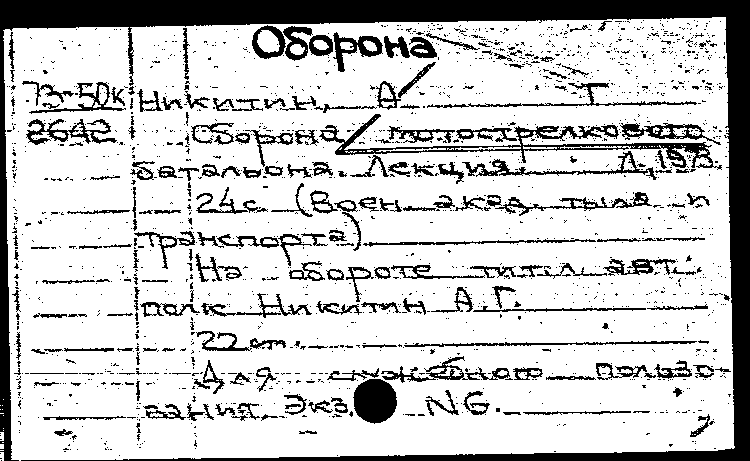 Оборона
73-50к Никитин, А Г
2642 Оборона мотострелкового
батальона. Лекция. Л, 1973.
24с (Воен. акад. тыла и
транспорта)
На обороте тит. л. авт.
полк Никитин А.Г.
22 см.
Для служебного пользо-
вания, Экз. № 6.